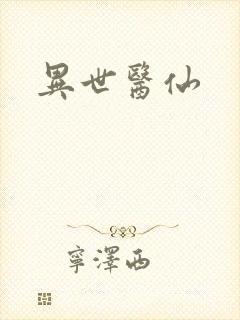 異世醫仙
寧澤西